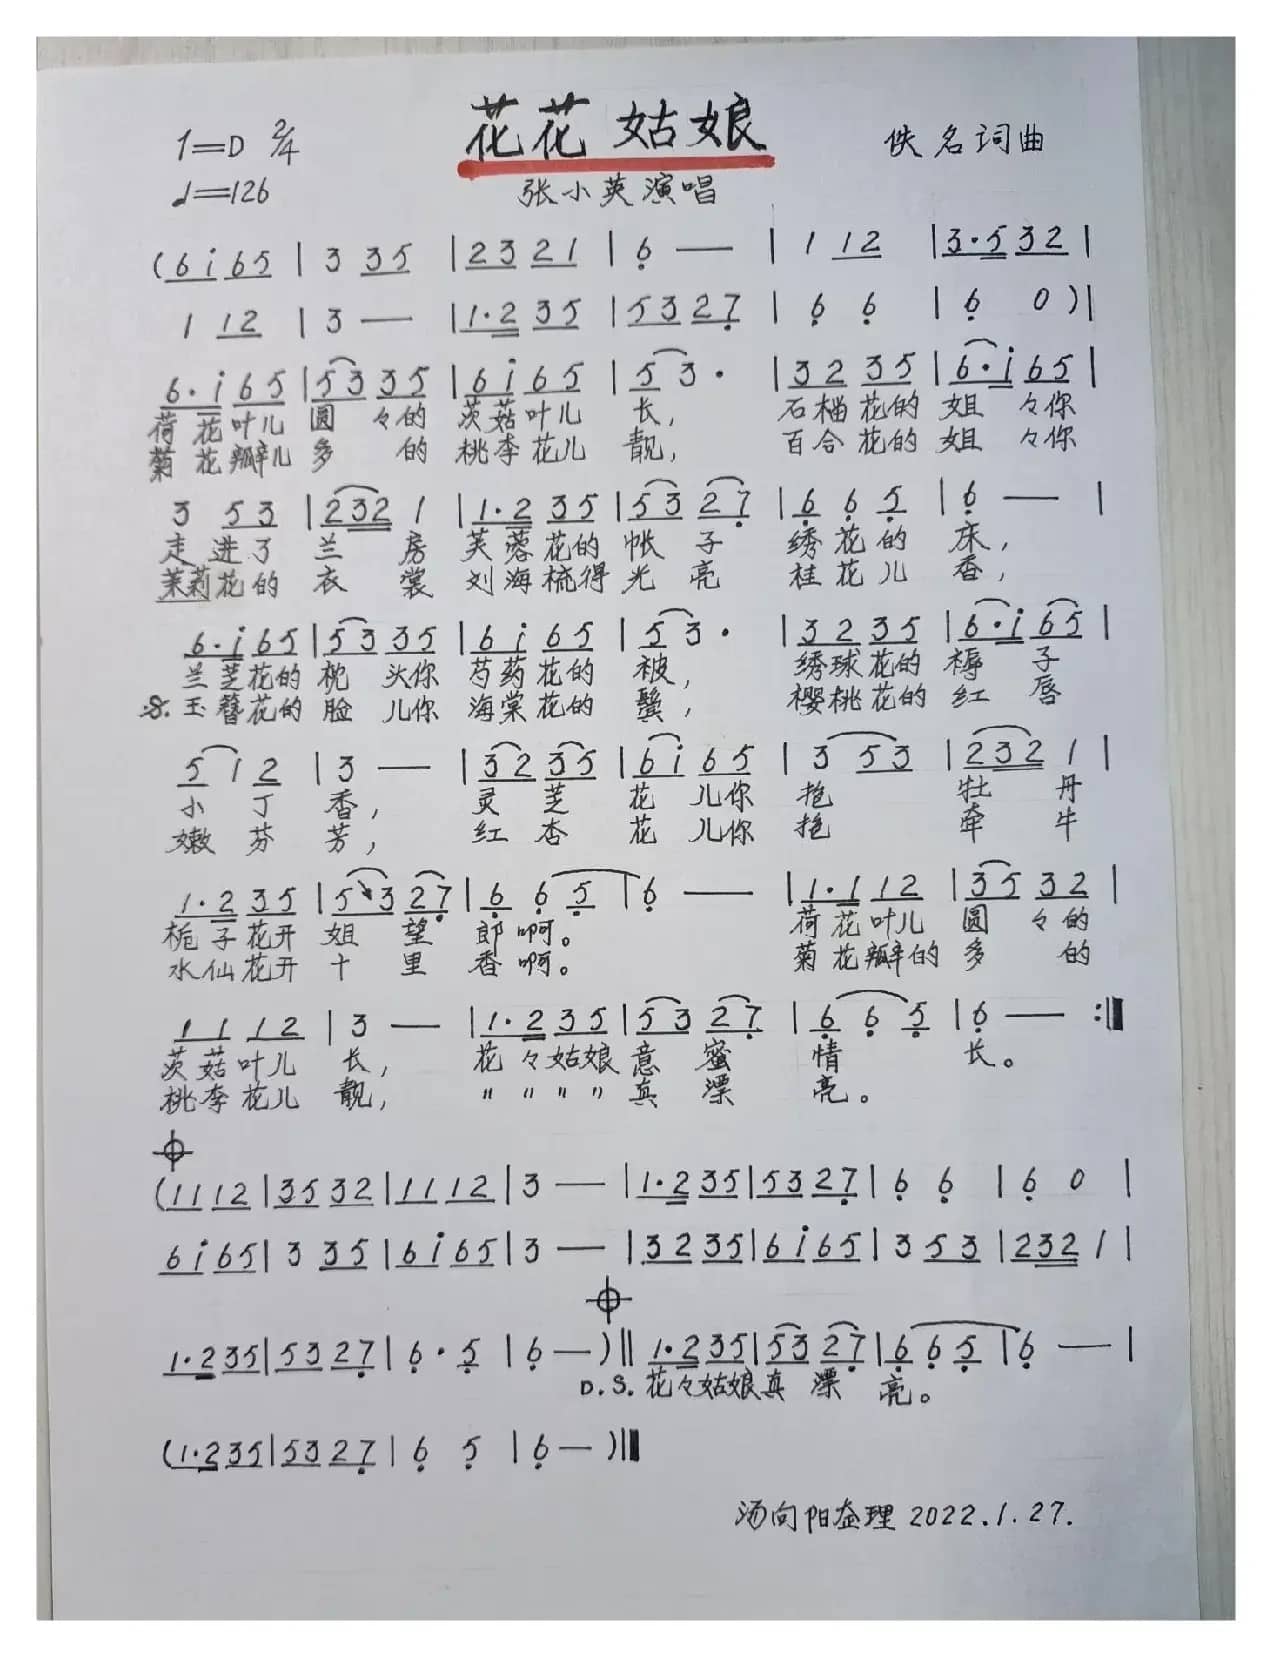 花花姑娘
1=D 2/4
佚名词曲
♩=126
张小英演唱
(6i 65 | 3 35 | 23 21 | 6̣ — | 1 12 | 3·5 32 |
1 12 | 3 — | 1·2 35 | 53 27̣ | 6̣ 6̣ | 6̣ 0 )|
6·i 65 | 53 35 | 6i 65 | 5 3· | 32 35 | 6·i 65 |
荷花叶儿 圆々的 茨菇叶儿 长, 石榴花的 姐々你
菊花瓣儿 多的 桃李花儿 靓, 百合花的 姐々你
3 53 | 232 1 | 1·2 35 | 53 27̣ | 6̣ 6̣ 5̣ | 6̣ — |
走进了 兰房 芙蓉花的 帐子 绣花的 床,
茉莉花的 衣裳 刘海梳得 光亮 桂花儿 香,
6·i 65 | 53 35 | 6i 65 | 5 3· | 32 35 | 6·i 65 |
兰芝花的 枕头你 芍药花的 被, 绣球花的 褥子
𝄋. 玉簪花的 脸儿你 海棠花的 鬓, 樱桃花的 红唇
5 1 2 | 3 — | 32 35 | 6i 65 | 3 53 | 232 1 |
小丁 香, 灵芝 花儿你 艳 牡丹
嫩芬 芳, 红杏 花儿你 艳 牵牛
1·2 35 | 53 27̣ | 6̣ 6̣ 5̣ | 6̣ — | 1·1 12 | 35 32 |
栀子花开 姐望 郎啊。 荷花叶儿 圆々的
水仙花开 十里 香啊。 菊花瓣的 多的
11 12 | 3 — | 1·2 35 | 53 27̣ | 6̣ 6̣ 5̣ | 6̣ — :‖
茨菇叶儿 长, 花々姑娘 意蜜 情 长。
桃李花儿 靓, 〃〃〃〃 真漂 亮。
𝄌
(11 12 | 35 32 | 11 12 | 3 — | 1·2 35 | 53 27̣ | 6̣ 6̣ | 6̣ 0 |
6i 65 | 3 35 | 6i 65 | 3 — | 32 35 | 6i 65 | 3 53 | 232 1 |
𝄌
1·2 35 | 53 27̣ | 6̣· 5̣ | 6̣ — )‖ 1·2 35 | 53 27̣ | 6̣ 6̣ 5̣ | 6̣ — |
D.S. 花々姑娘 真漂 亮。
(1·2 35 | 53 27̣ | 6̣ 5̣ | 6̣ — )‖
汤向阳整理 2022.1.27.